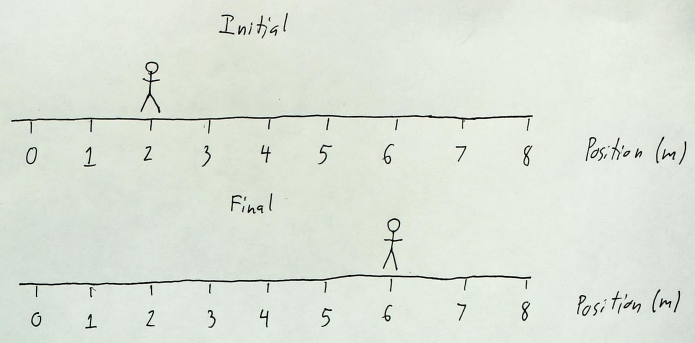 Initial
0 1 2 3 4 5 6 7 8 Position (m)
Final
0 1 2 3 4 5 6 7 8 Position (m)